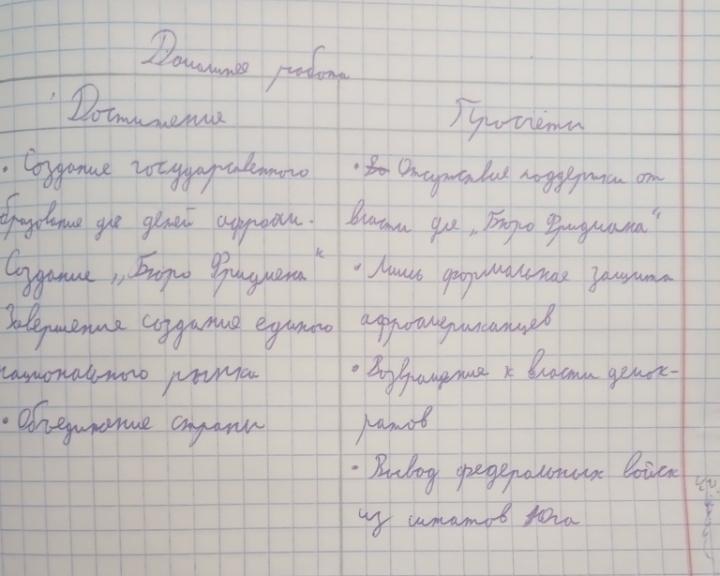 Домашняя работа
Достижения
• Создание государственного
бразование для детей афроам.
Создание „Бюро Фридмена"
Завершение создание единого
национального рынка
• Объединение страны
Просчёты
• Отсутствие поддержки от
власти для „Бюро Фридмана"
• Лишь формальная защита
афроамериканцев
• Возвращение к власти демок-
ратов
• Вывод федеральных войск
из штатов Юга